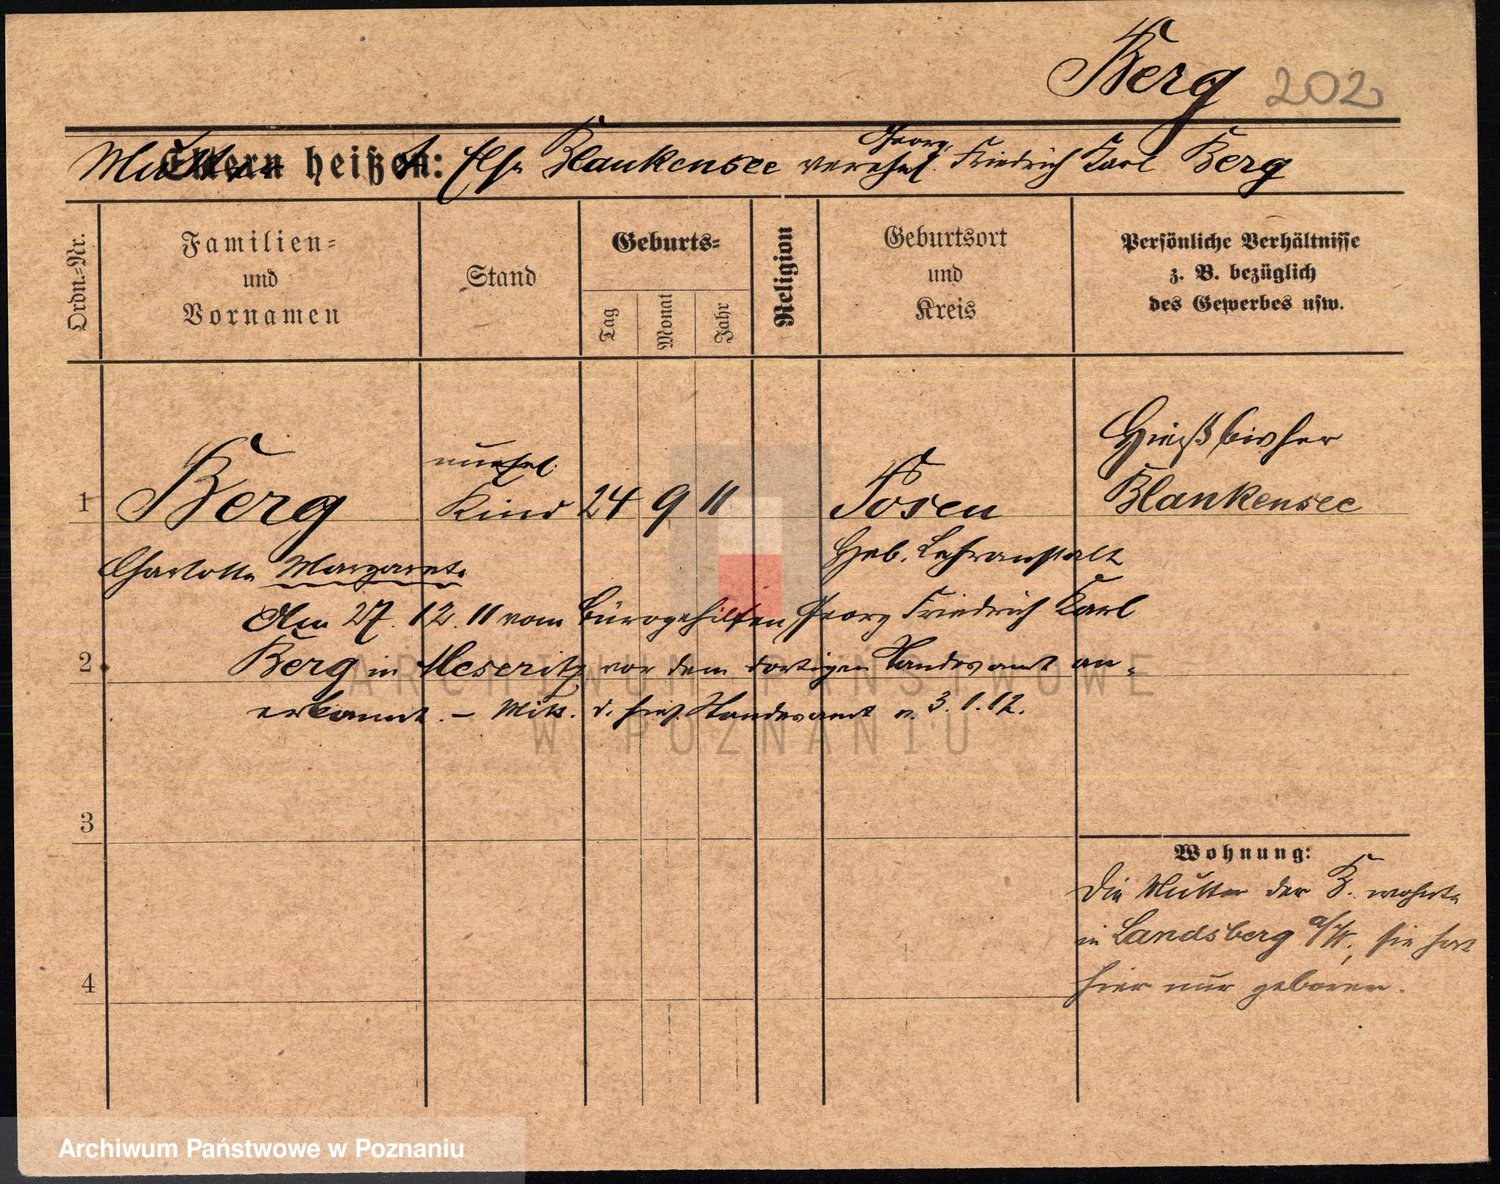 Berg 202
Eltern heißen:
Mutter heißt: Else Blankensee verehel. Georg Friedrich Karl Berg
Ordn.=Nr.
Familien=
und
Vornamen
Stand
Geburts=
Tag
Monat
Jahr
Religion
Geburtsort
und
Kreis
Persönliche Verhältnisse
z. B. bezüglich
des Gewerbes usw.
1 Berg
unehel.
Kind
24 9 11
Posen
Heb. Lehranstalt
Hieß bisher
Blankensee
Charlotte Margarete
Am 27. 12. 11 vom Bürogehilfen Georg Friedrich Karl
2 Berg in Meseritz vor dem dortigen Standesamt an=
erkannt. – Mitt. d. hies. Standesamt v. 3. 1. 12.
3
4
Wohnung:
Die Mutter der B. wohnte
in Landsberg a/W, sie hat
hier nur geboren.
ARCHIWUM PAŃSTWOWE
W POZNANIU
Archiwum Państwowe w Poznaniu